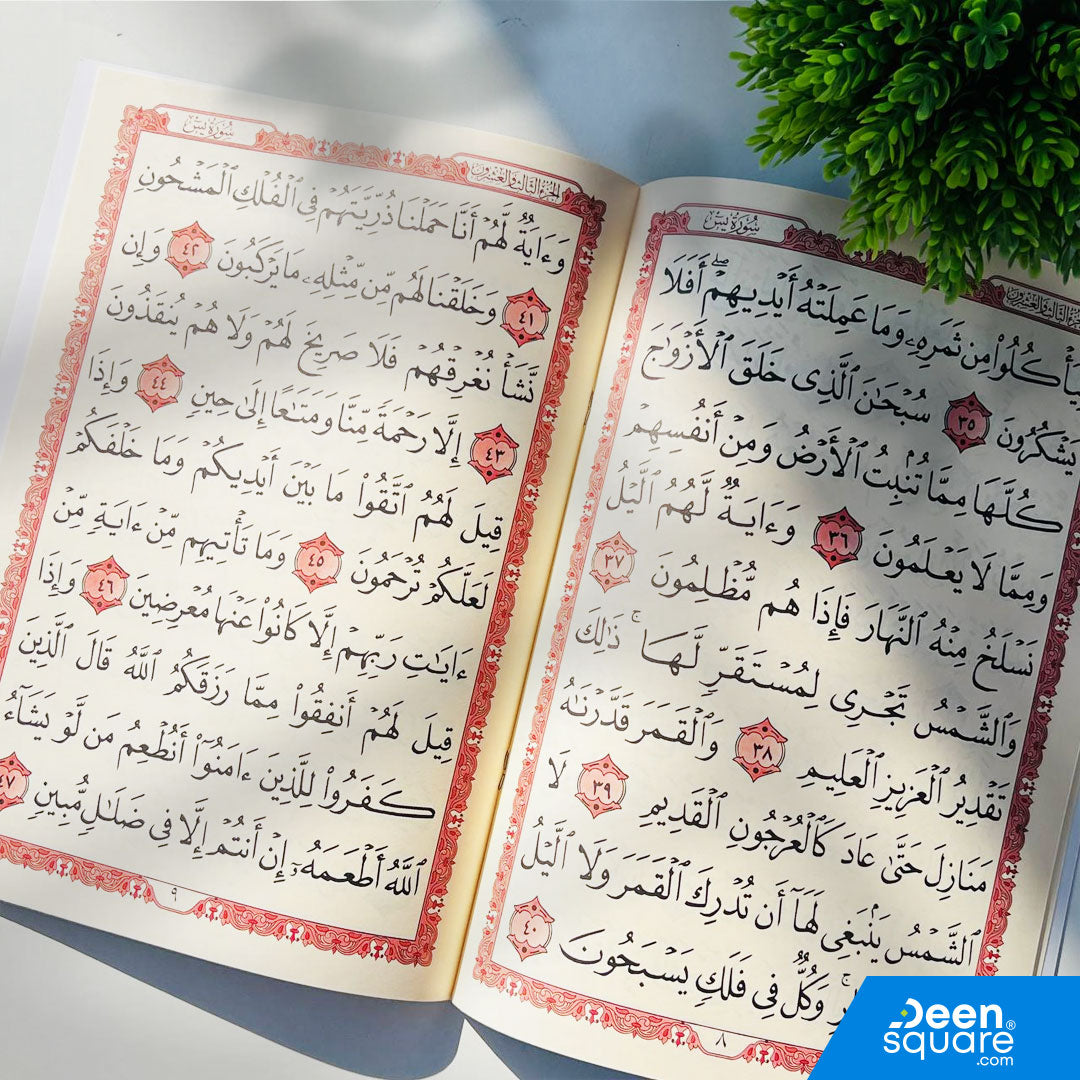 سُورَةُ يسٓ
الجزء الثالث والعشرون
لِيَأۡكُلُوا۟ مِن ثَمَرِهِۦ وَمَا عَمِلَتۡهُ أَيۡدِيهِمۡۖ أَفَلَا
يَشۡكُرُونَ ٣٥ سُبۡحَٰنَ ٱلَّذِى خَلَقَ ٱلۡأَزۡوَٰجَ
كُلَّهَا مِمَّا تُنۢبِتُ ٱلۡأَرۡضُ وَمِنۡ أَنفُسِهِمۡ
وَمِمَّا لَا يَعۡلَمُونَ ٣٦ وَءَايَةٌ لَّهُمُ ٱلَّيۡلُ
نَسۡلَخُ مِنۡهُ ٱلنَّهَارَ فَإِذَا هُم مُّظۡلِمُونَ ٣٧
وَٱلشَّمۡسُ تَجۡرِى لِمُسۡتَقَرٍّ لَّهَاۚ ذَٰلِكَ
تَقۡدِيرُ ٱلۡعَزِيزِ ٱلۡعَلِيمِ ٣٨ وَٱلۡقَمَرَ قَدَّرۡنَٰهُ
مَنَازِلَ حَتَّىٰ عَادَ كَٱلۡعُرۡجُونِ ٱلۡقَدِيمِ ٣٩ لَا
ٱلشَّمۡسُ يَنۢبَغِى لَهَآ أَن تُدۡرِكَ ٱلۡقَمَرَ وَلَا ٱلَّيۡلُ
وَكُلٌّ فِى فَلَكٍ يَسۡبَحُونَ ٤٠
٨
سُورَةُ يسٓ
الجزء الثالث والعشرون
وَءَايَةٌ لَّهُمۡ أَنَّا حَمَلۡنَا ذُرِّيَّتَهُمۡ فِى ٱلۡفُلۡكِ ٱلۡمَشۡحُونِ
٤١ وَخَلَقۡنَا لَهُم مِّن مِّثۡلِهِۦ مَا يَرۡكَبُونَ ٤٢ وَإِن
نَّشَأۡ نُغۡرِقۡهُمۡ فَلَا صَرِيخَ لَهُمۡ وَلَا هُمۡ يُنقَذُونَ
٤٣ إِلَّا رَحۡمَةً مِّنَّا وَمَتَٰعًا إِلَىٰ حِينٍ ٤٤ وَإِذَا
قِيلَ لَهُمُ ٱتَّقُوا۟ مَا بَيۡنَ أَيۡدِيكُمۡ وَمَا خَلۡفَكُمۡ
لَعَلَّكُمۡ تُرۡحَمُونَ ٤٥ وَمَا تَأۡتِيهِم مِّنۡ ءَايَةٍ مِّنۡ
ءَايَٰتِ رَبِّهِمۡ إِلَّا كَانُوا۟ عَنۡهَا مُعۡرِضِينَ ٤٦ وَإِذَا
قِيلَ لَهُمۡ أَنفِقُوا۟ مِمَّا رَزَقَكُمُ ٱللَّهُ قَالَ ٱلَّذِينَ
كَفَرُوا۟ لِلَّذِينَ ءَامَنُوٓا۟ أَنُطۡعِمُ مَن لَّوۡ يَشَآءُ
ٱللَّهُ أَطۡعَمَهُۥٓ إِنۡ أَنتُمۡ إِلَّا فِى ضَلَٰلٍ مُّبِينٍ ٤٧
٩
Deen
square®
.com